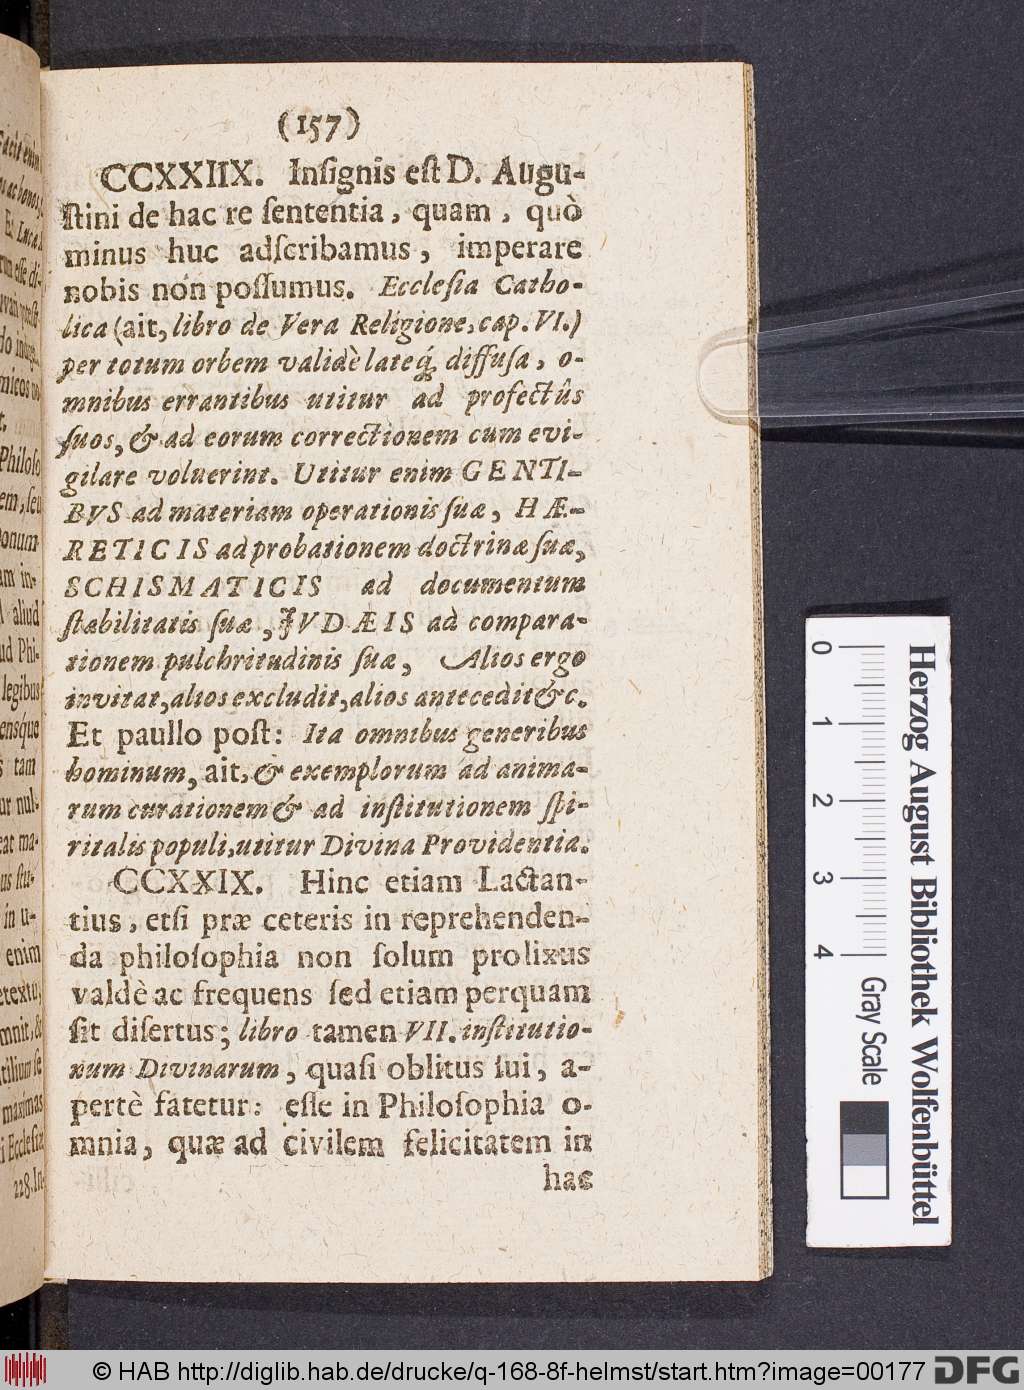 (157)
CCXXIIX. Inſignis eſt D. Augu-
ſtini de hac re ſententia, quam, quò
minus huc adſcribamus, imperare
nobis non poſſumus. Eccleſia Catho-
lica (ait, libro de Vera Religione, cap. VI.)
per totum orbem validè lateq́; diffuſa, o-
mnibus errantibus utitur ad profectûs
ſuos, & ad eorum correctionem cum evi-
gilare voluerint. Utitur enim GENTI-
BVS ad materiam operationis ſuæ, HÆ-
RETICIS ad probationem doctrinæ ſuæ,
SCHISMATICIS ad documentum
ſtabilitatis ſuæ, JVDÆIS ad compara-
tionem pulchritudinis ſuæ, Alios ergo
invitat, alios excludit, alios antecedit &c.
Et paullo poſt: Ita omnibus generibus
hominum, ait, & exemplorum ad anima-
rum curationem & ad inſtitutionem ſpi-
ritalis populi, utitur Divina Providentia.
CCXXIX. Hinc etiam Lactan-
tius, etſi præ ceteris in reprehenden-
da philoſophia non ſolum prolixus
valdè ac frequens ſed etiam perquam
ſit diſertus; libro tamen VII. inſtitutio-
num Divinarum, quaſi oblitus ſui, a-
pertè fatetur: eſſe in Philoſophia o-
mnia, quæ ad civilem felicitatem in
hac
0 1 2 3 4
Gray Scale
Herzog August Bibliothek Wolfenbüttel
© HAB http://diglib.hab.de/drucke/q-168-8f-helmst/start.htm?image=00177
DFG